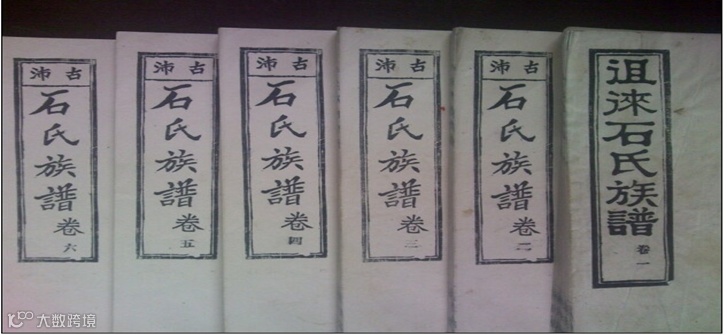 徂徠石氏族譜
卷一
古沛
石氏族譜
卷二
古沛
石氏族譜
卷三
古沛
石氏族譜
卷四
古沛
石氏族譜
卷五
古沛
石氏族譜
卷六
大数跨境